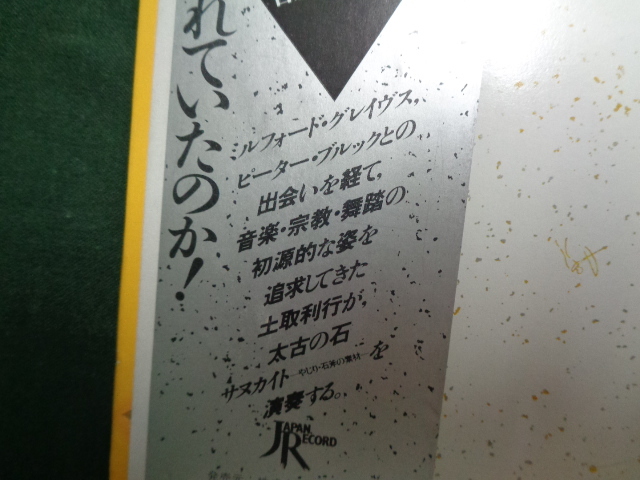 れていたのか!
ミルフォード・グレイヴス、
ピーター・ブルックとの
出会いを経て、
音楽・宗教・舞踏の
初源的な姿を
追求してきた
土取利行が、
太古の石
サヌカイト—やじり・石斧の素材—を
演奏する。
JAPAN
RECORD